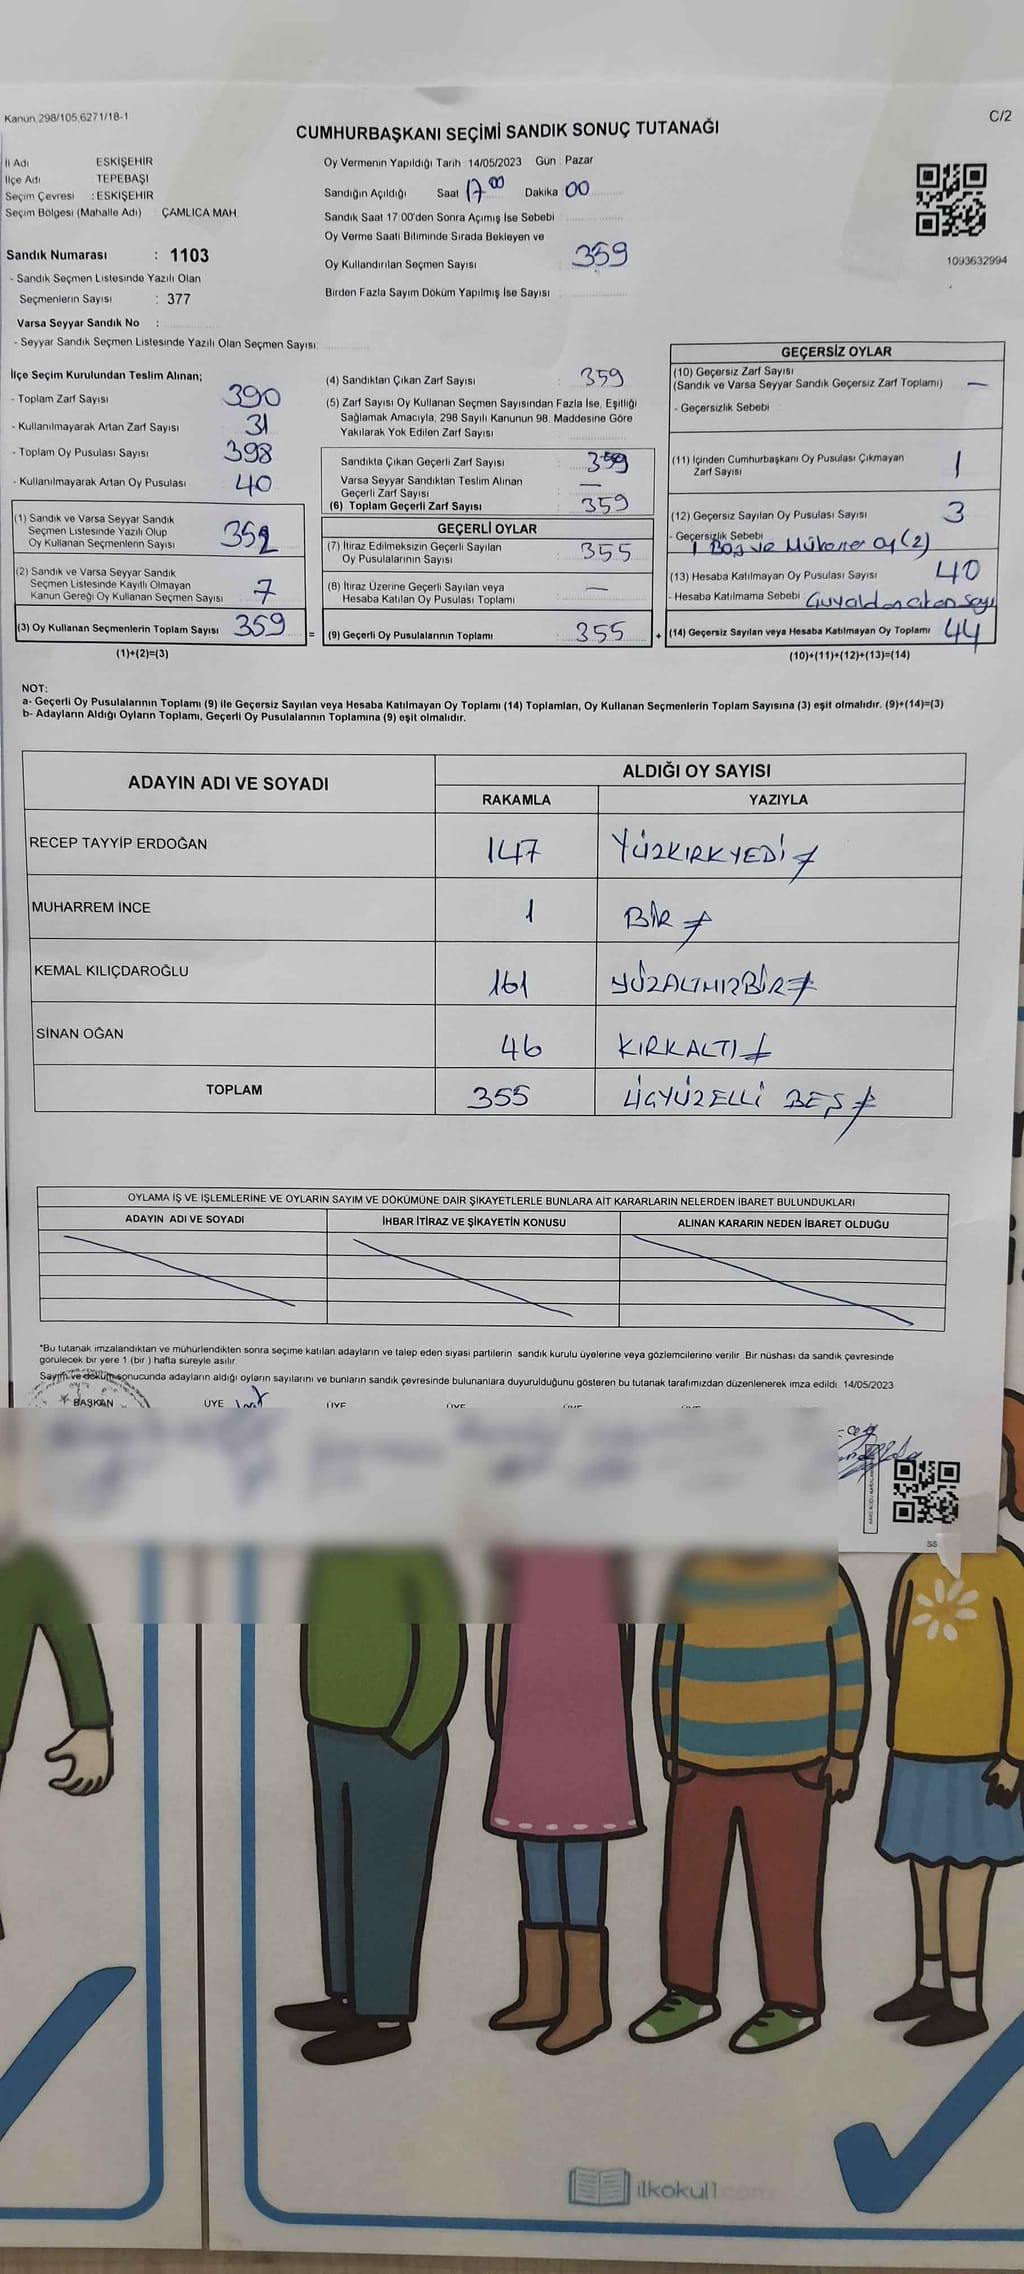 Kanun,298/105,6271/18-1
C/2
CUMHURBAŞKANI SEÇİMİ SANDIK SONUÇ TUTANAĞI
İl Adı ESKİŞEHİR
İlçe Adı TEPEBAŞI
Seçim Çevresi : ESKİŞEHİR
Seçim Bölgesi (Mahalle Adı) : ÇAMLICA MAH.
Sandık Numarası : 1103
- Sandık Seçmen Listesinde Yazılı Olan
Seçmenlerin Sayısı : 377
Varsa Seyyar Sandık No :
- Seyyar Sandık Seçmen Listesinde Yazılı Olan Seçmen Sayısı:
Oy Vermenin Yapıldığı Tarih : 14/05/2023 Gün : Pazar
Sandığın Açıldığı Saat 17 00 Dakika 00
Sandık Saat 17:00'den Sonra Açımış İse Sebebi
Oy Verme Saati Bitiminde Sırada Bekleyen ve
Oy Kullandırılan Seçmen Sayısı 359
Birden Fazla Sayım Döküm Yapılmış İse Sayısı :
1093632994
İlçe Seçim Kurulundan Teslim Alınan;
- Toplam Zarf Sayısı 390
- Kullanılmayarak Artan Zarf Sayısı 31
- Toplam Oy Pusulası Sayısı 398
- Kullanılmayarak Artan Oy Pusulası 40
(1) Sandık ve Varsa Seyyar Sandık
Seçmen Listesinde Yazılı Olup
Oy Kullanan Seçmenlerin Sayısı 352
(2) Sandık ve Varsa Seyyar Sandık
Seçmen Listesinde Kayıtlı Olmayan
Kanun Gereği Oy Kullanan Seçmen Sayısı 7
(3) Oy Kullanan Seçmenlerin Toplam Sayısı 359
(1)+(2)=(3)
(4) Sandıktan Çıkan Zarf Sayısı : 359
(5) Zarf Sayısı Oy Kullanan Seçmen Sayısından Fazla İse, Eşitliği
Sağlamak Amacıyla, 298 Sayılı Kanunun 98. Maddesine Göre
Yakılarak Yok Edilen Zarf Sayısı
Sandıkta Çıkan Geçerli Zarf Sayısı : 359
Varsa Seyyar Sandıktan Teslim Alınan
Geçerli Zarf Sayısı : —
(6) Toplam Geçerli Zarf Sayısı : 359
GEÇERLİ OYLAR
(7) İtiraz Edilmeksizin Geçerli Sayılan
Oy Pusulalarının Sayısı : 355
(8) İtiraz Üzerine Geçerli Sayılan veya
Hesaba Katılan Oy Pusulası Toplamı : —
= (9) Geçerli Oy Pusulalarının Toplamı : 355
GEÇERSİZ OYLAR
(10) Geçersiz Zarf Sayısı
(Sandık ve Varsa Seyyar Sandık Geçersiz Zarf Toplamı) : —
- Geçersizlik Sebebi
(11) İçinden Cumhurbaşkanı Oy Pusulası Çıkmayan
Zarf Sayısı 1
(12) Geçersiz Sayılan Oy Pusulası Sayısı 3
- Geçersizlik Sebebi
1 Boş ve Mükerrer Oy (2)
(13) Hesaba Katılmayan Oy Pusulası Sayısı 40
- Hesaba Katılmama Sebebi :
+ (14) Geçersiz Sayılan veya Hesaba Katılmayan Oy Toplamı 44
(10)+(11)+(12)+(13)=(14)
NOT:
a- Geçerli Oy Pusulalarının Toplamı (9) ile Geçersiz Sayılan veya Hesaba Katılmayan Oy Toplamı (14) Toplamları, Oy Kullanan Seçmenlerin Toplam Sayısına (3) eşit olmalıdır. (9)+(14)=(3)
b- Adayların Aldığı Oyların Toplamı, Geçerli Oy Pusulalarının Toplamına (9) eşit olmalıdır.
ADAYIN ADI VE SOYADI ALDIĞI OY SAYISI
RAKAMLA YAZIYLA
RECEP TAYYİP ERDOĞAN 147 YÜZKIRKYEDİ
MUHARREM İNCE 1 BİR
KEMAL KILIÇDAROĞLU 161 YÜZALTMIŞBİR
SİNAN OĞAN 46 KIRKALTI
TOPLAM 355 ÜÇYÜZELLİ BEŞ
OYLAMA İŞ VE İŞLEMLERİNE VE OYLARIN SAYIM VE DÖKÜMÜNE DAİR ŞİKAYETLERLE BUNLARA AİT KARARLARIN NELERDEN İBARET BULUNDUKLARI
ADAYIN ADI VE SOYADI İHBAR İTİRAZ VE ŞİKAYETİN KONUSU ALINAN KARARIN NEDEN İBARET OLDUĞU
*Bu tutanak imzalandıktan ve mühürlendikten sonra seçime katılan adayların ve talep eden siyasi partilerin sandık kurulu üyelerine veya gözlemcilerine verilir. Bir nüshası da sandık çevresinde
görülecek bir yere 1 (bir ) hafta süreyle asılır.
Sayım ve döküm sonucunda adayların aldığı oyların sayılarını ve bunların sandık çevresinde bulunanlara duyurulduğunu gösteren bu tutanak tarafımızdan düzenlenerek imza edildi. 14/05/2023
BAŞKAN ÜYE ÜYE ÜYE ÜYE ÜYE
SS
ilkokul1.com